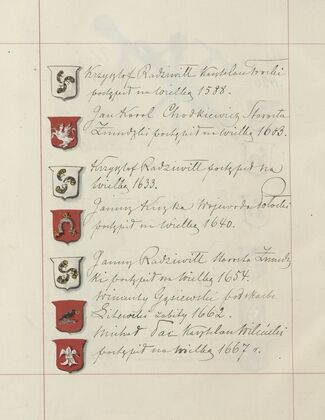 Krzysztof Radziwiłł Kasztelan Trocki
postąpił na Wielką 1588.
Jan Karol Chodkiewicz Starosta
Żmudzki postąpił na Wielką 1603.
Krzysztof Radziwiłł postąpił na
Wielką 1633.
Janusz Kiszka Wojewoda Połocki
postąpił na Wielką 1640.
Janusz Radziwiłł Starosta Żmudz
ki postąpił na Wielką 1654.
Wincenty Gąsiewski podskarbi
Litewski zabity 1662.
Michał Pac Kasztelan Wileński
postąpił na Wielką 1667 r.